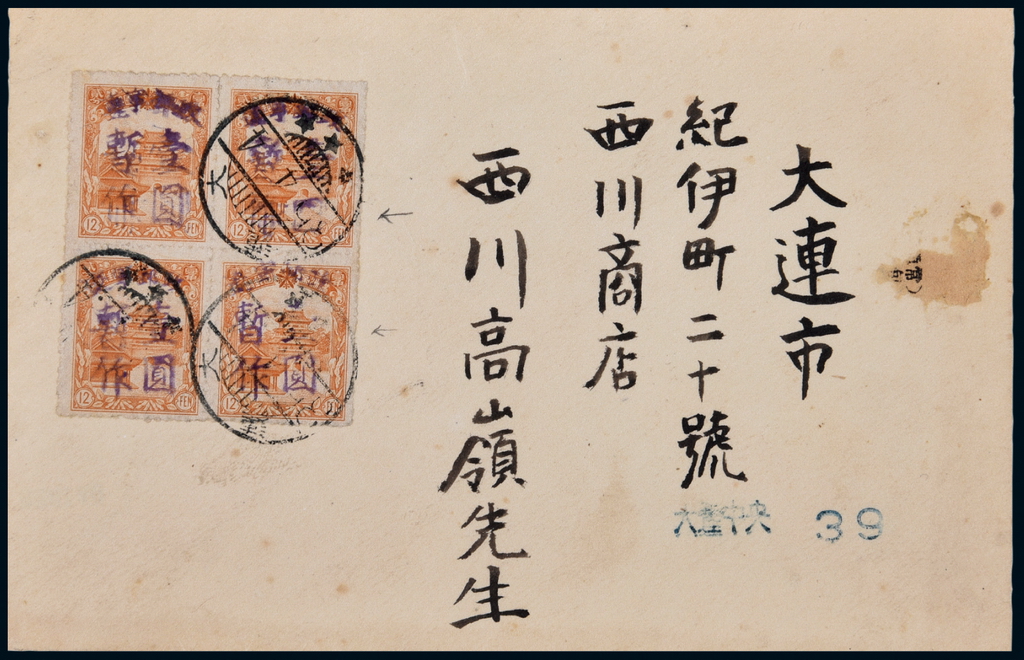 大連市
紀伊町二十號
西川商店
西川高嶺先生
大連中央 39
壹圓
暫作
12
12
壹圓
暫作
12
12